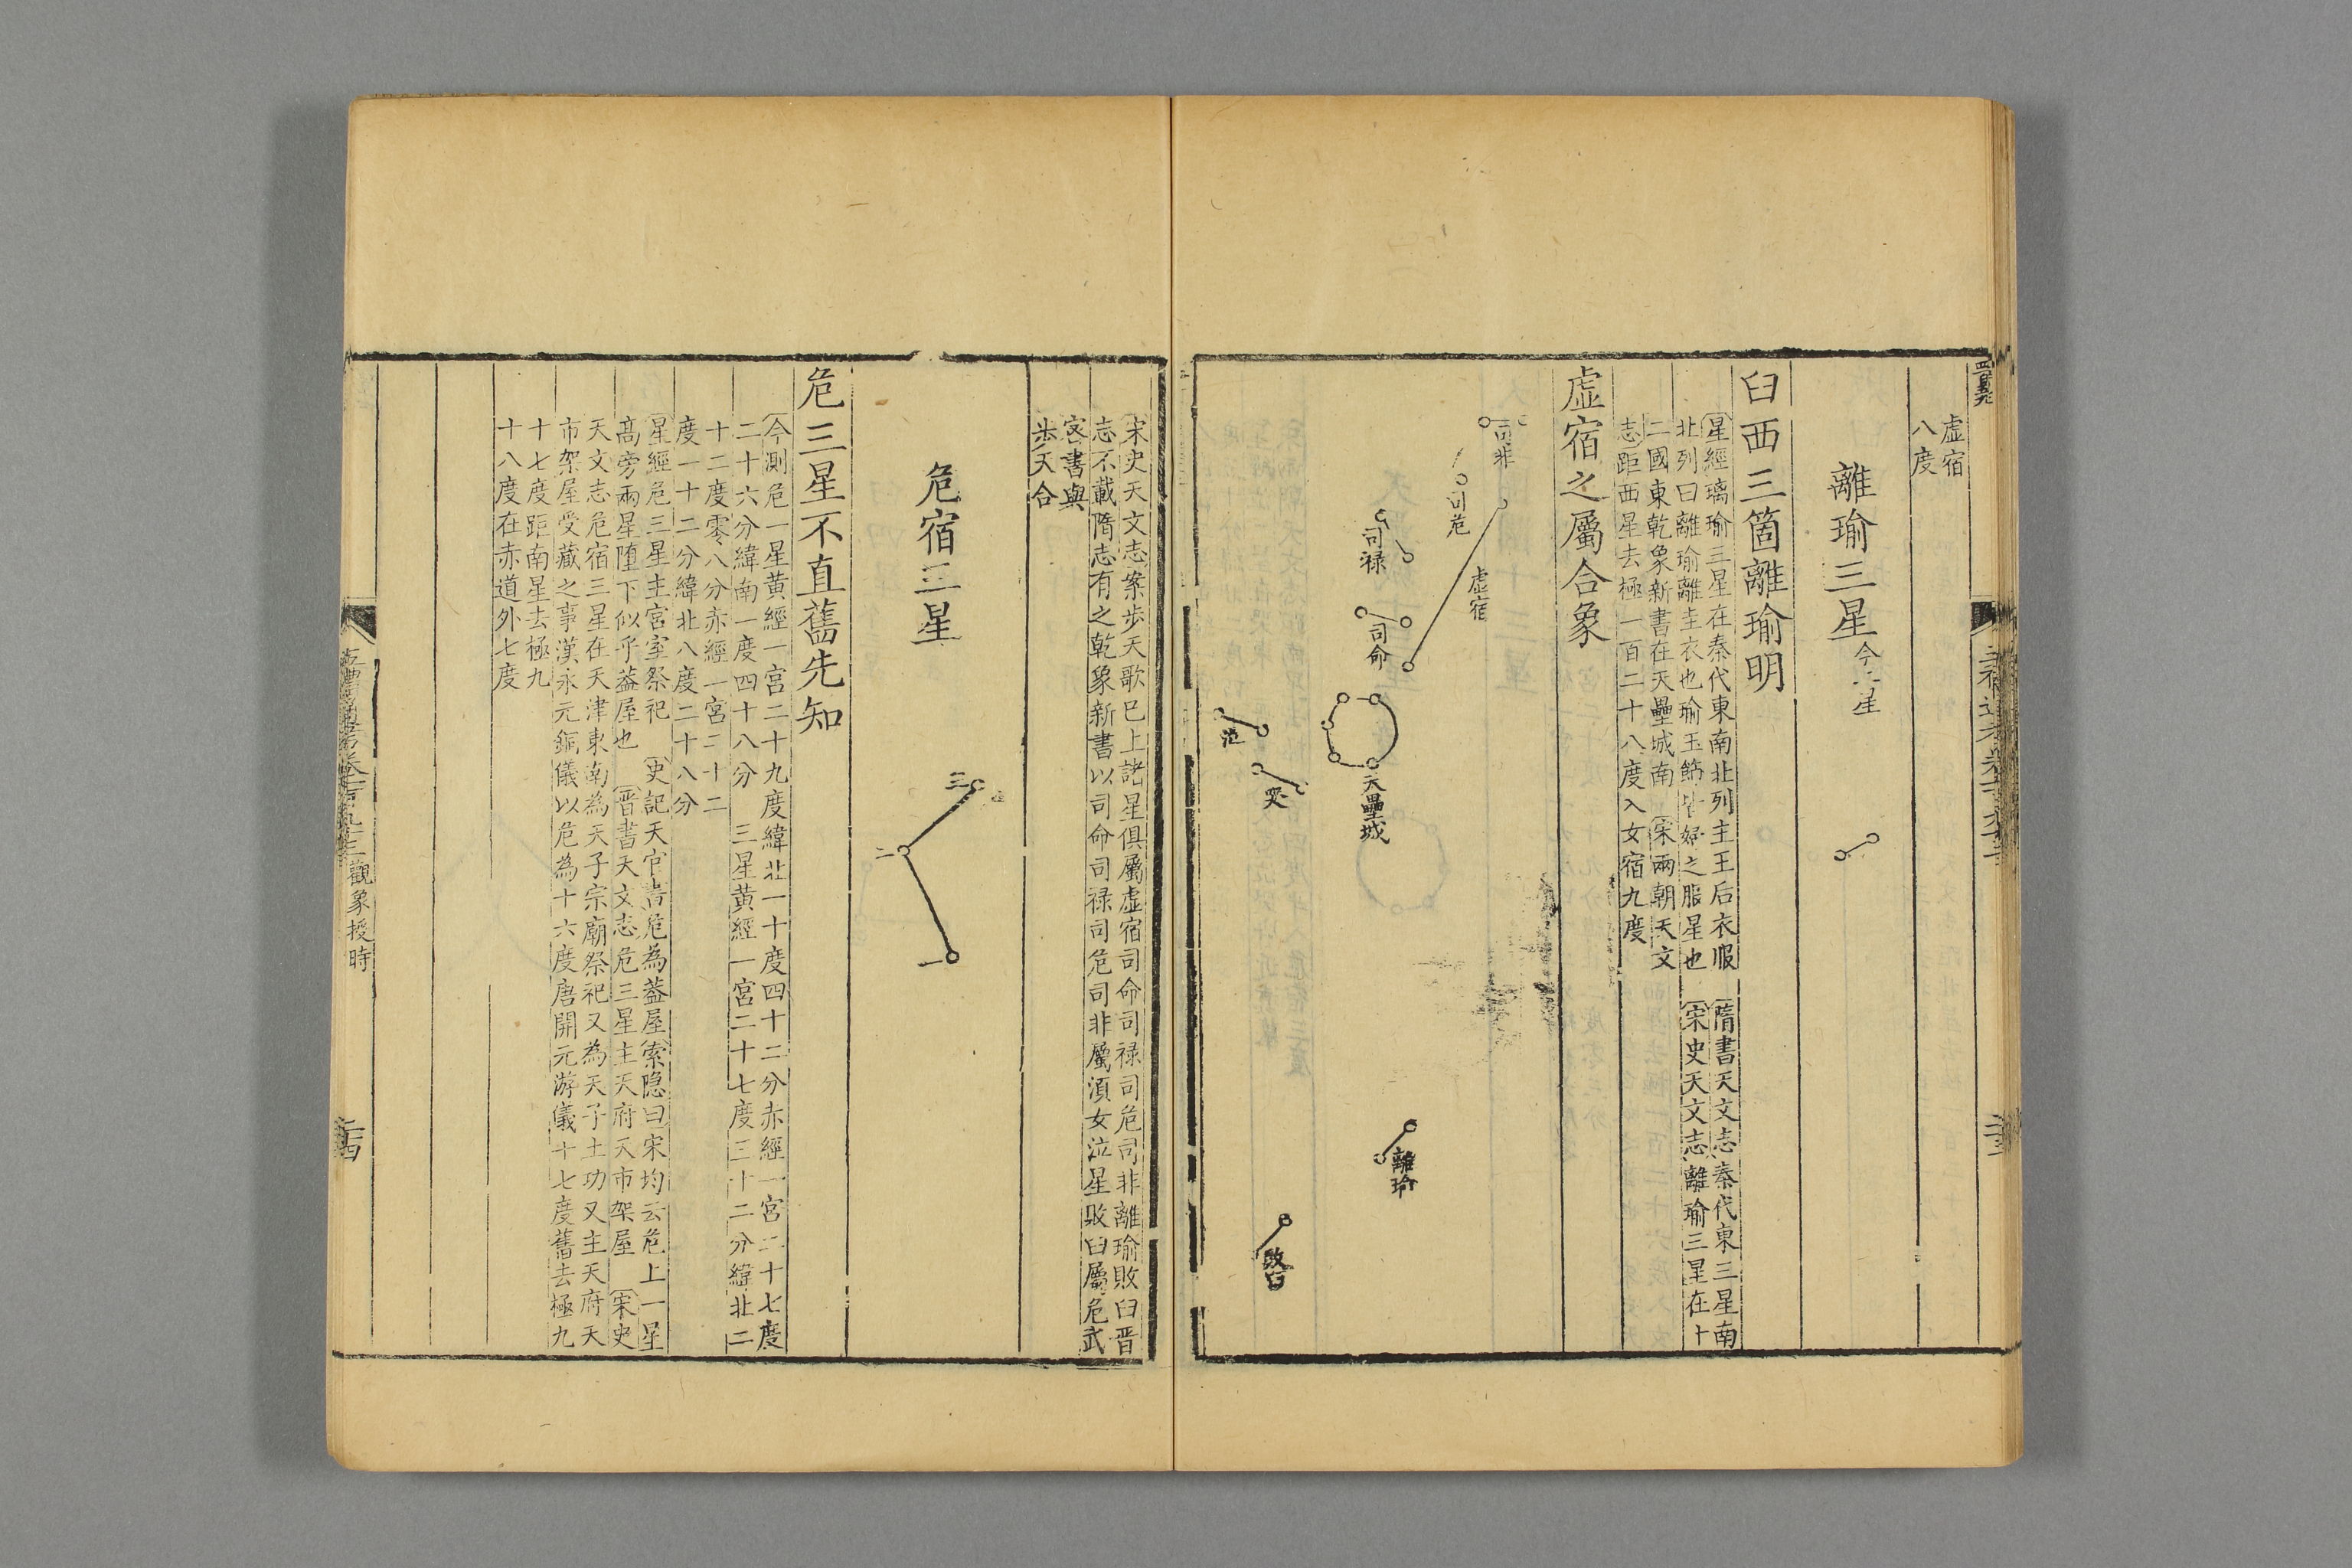 虛宿
八度
離瑜三星今二星
臼西三箇離瑜明
星經璃瑜三星在秦代東南北列主王后衣服 隋書天文志秦代東三星南
北列曰離瑜離圭衣也瑜玉飾皆婦之服星也 宋史天文志離瑜三星在十
二國東乾象新書在天壘城南 宋兩朝天文
志距西星去極一百二十八度入女宿九度
虛宿之屬合象
司非
司危
虛宿
司祿
司命
天壘城
哭
泣
離瑜
敗臼
宋史天文志案步天歌已上諸星俱屬虛宿司命司祿司危司非離瑜敗臼晉
志不載隋志有之乾象新書以司命司祿司危司非屬須女泣星敗臼屬危武
宻書與
步天合
危宿三星
三
二
一
危三星不直舊先知
今測危一星黄經一宮二十九度緯北一十度四十二分赤經一宮二十七度
二十六分緯南一度四十八分 三星黄經一宮二十七度三十二分緯北二
十二度零八分赤經一宮二十二
度一十二分緯北八度二十八分
星經危三星主宮室祭祀 史記天官書危為蓋屋索隠曰宋均云危上一星
髙旁兩星墮下似乎蓋屋也 晉書天文志危三星主天府天市架屋 宋史
天文志危宿三星在天津東南為天子宗廟祭祀又為天子土功又主天府天
市架屋受藏之事漢永元銅儀以危為十六度唐開元游儀十七度舊去極九
十七度距南星去極九
十八度在赤道外七度
觀象授時
二十四